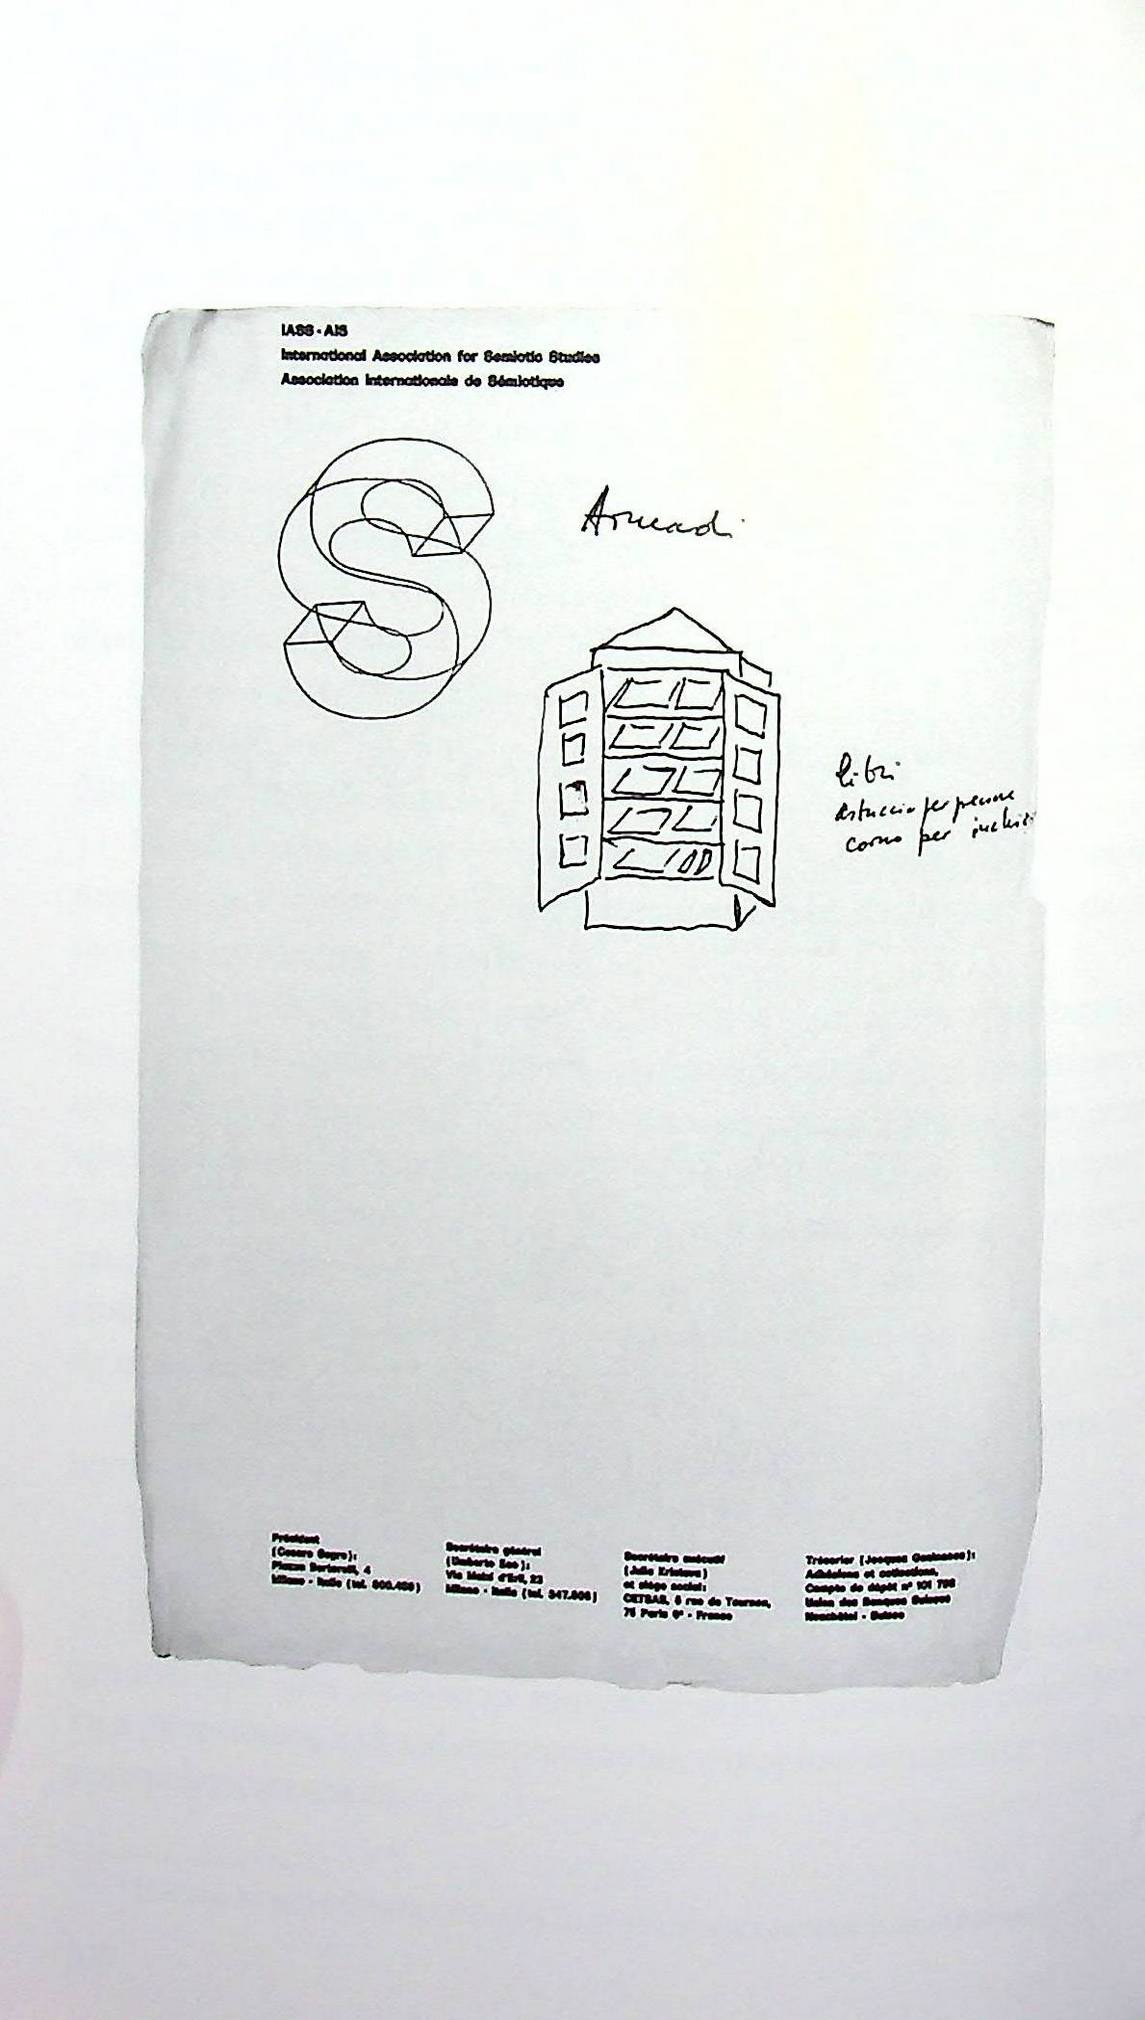 IASS-AIS
International Association for Semiotic Studies
Association Internationale de Sémiotique
S
Armadi
libri
astuccio per penne
corno per
Président
(Cesare Segre):
Piazza Bertarelli, 4
Milano - Italie (tel.
Secrétaire général
(Umberto Eco):
Via Melzi d'Eril, 23
Milano - Italie (tel. 347.
Secrétaire exécutif
(Julia Kristeva)
et siège social:
6 rue de Tournon,
75 Paris 6e - France
Trésorier (Jacques Geninasca):
Adhésions et cotisations,
Compte de dépôt n° 101
Union des Banques Suisses
Neuchâtel - Suisse